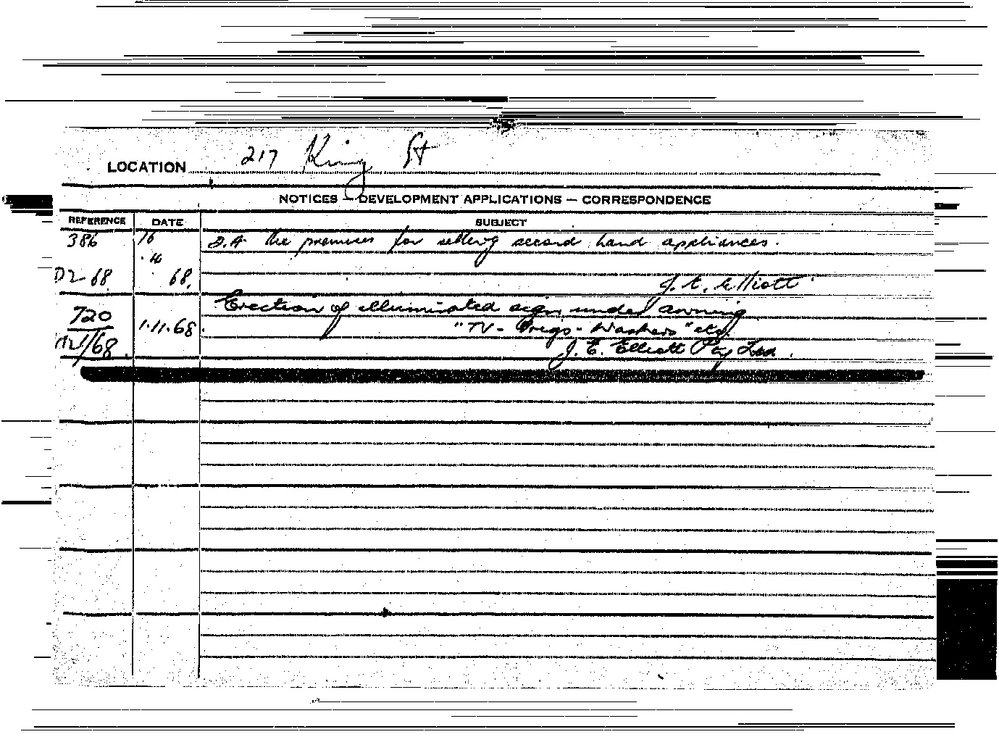 LOCATION 217 King St
NOTICES — DEVELOPMENT APPLICATIONS — CORRESPONDENCE
REFERENCE DATE SUBJECT
386 16 D.A. the premises for selling second hand appliances.
.4
D2-68 68. J. E. Elliott
Erection of illuminated sign under awning
720 1.11.68. "TV - Frigs - Washers" etc
/68. J. E. Elliott Pty Ltd.